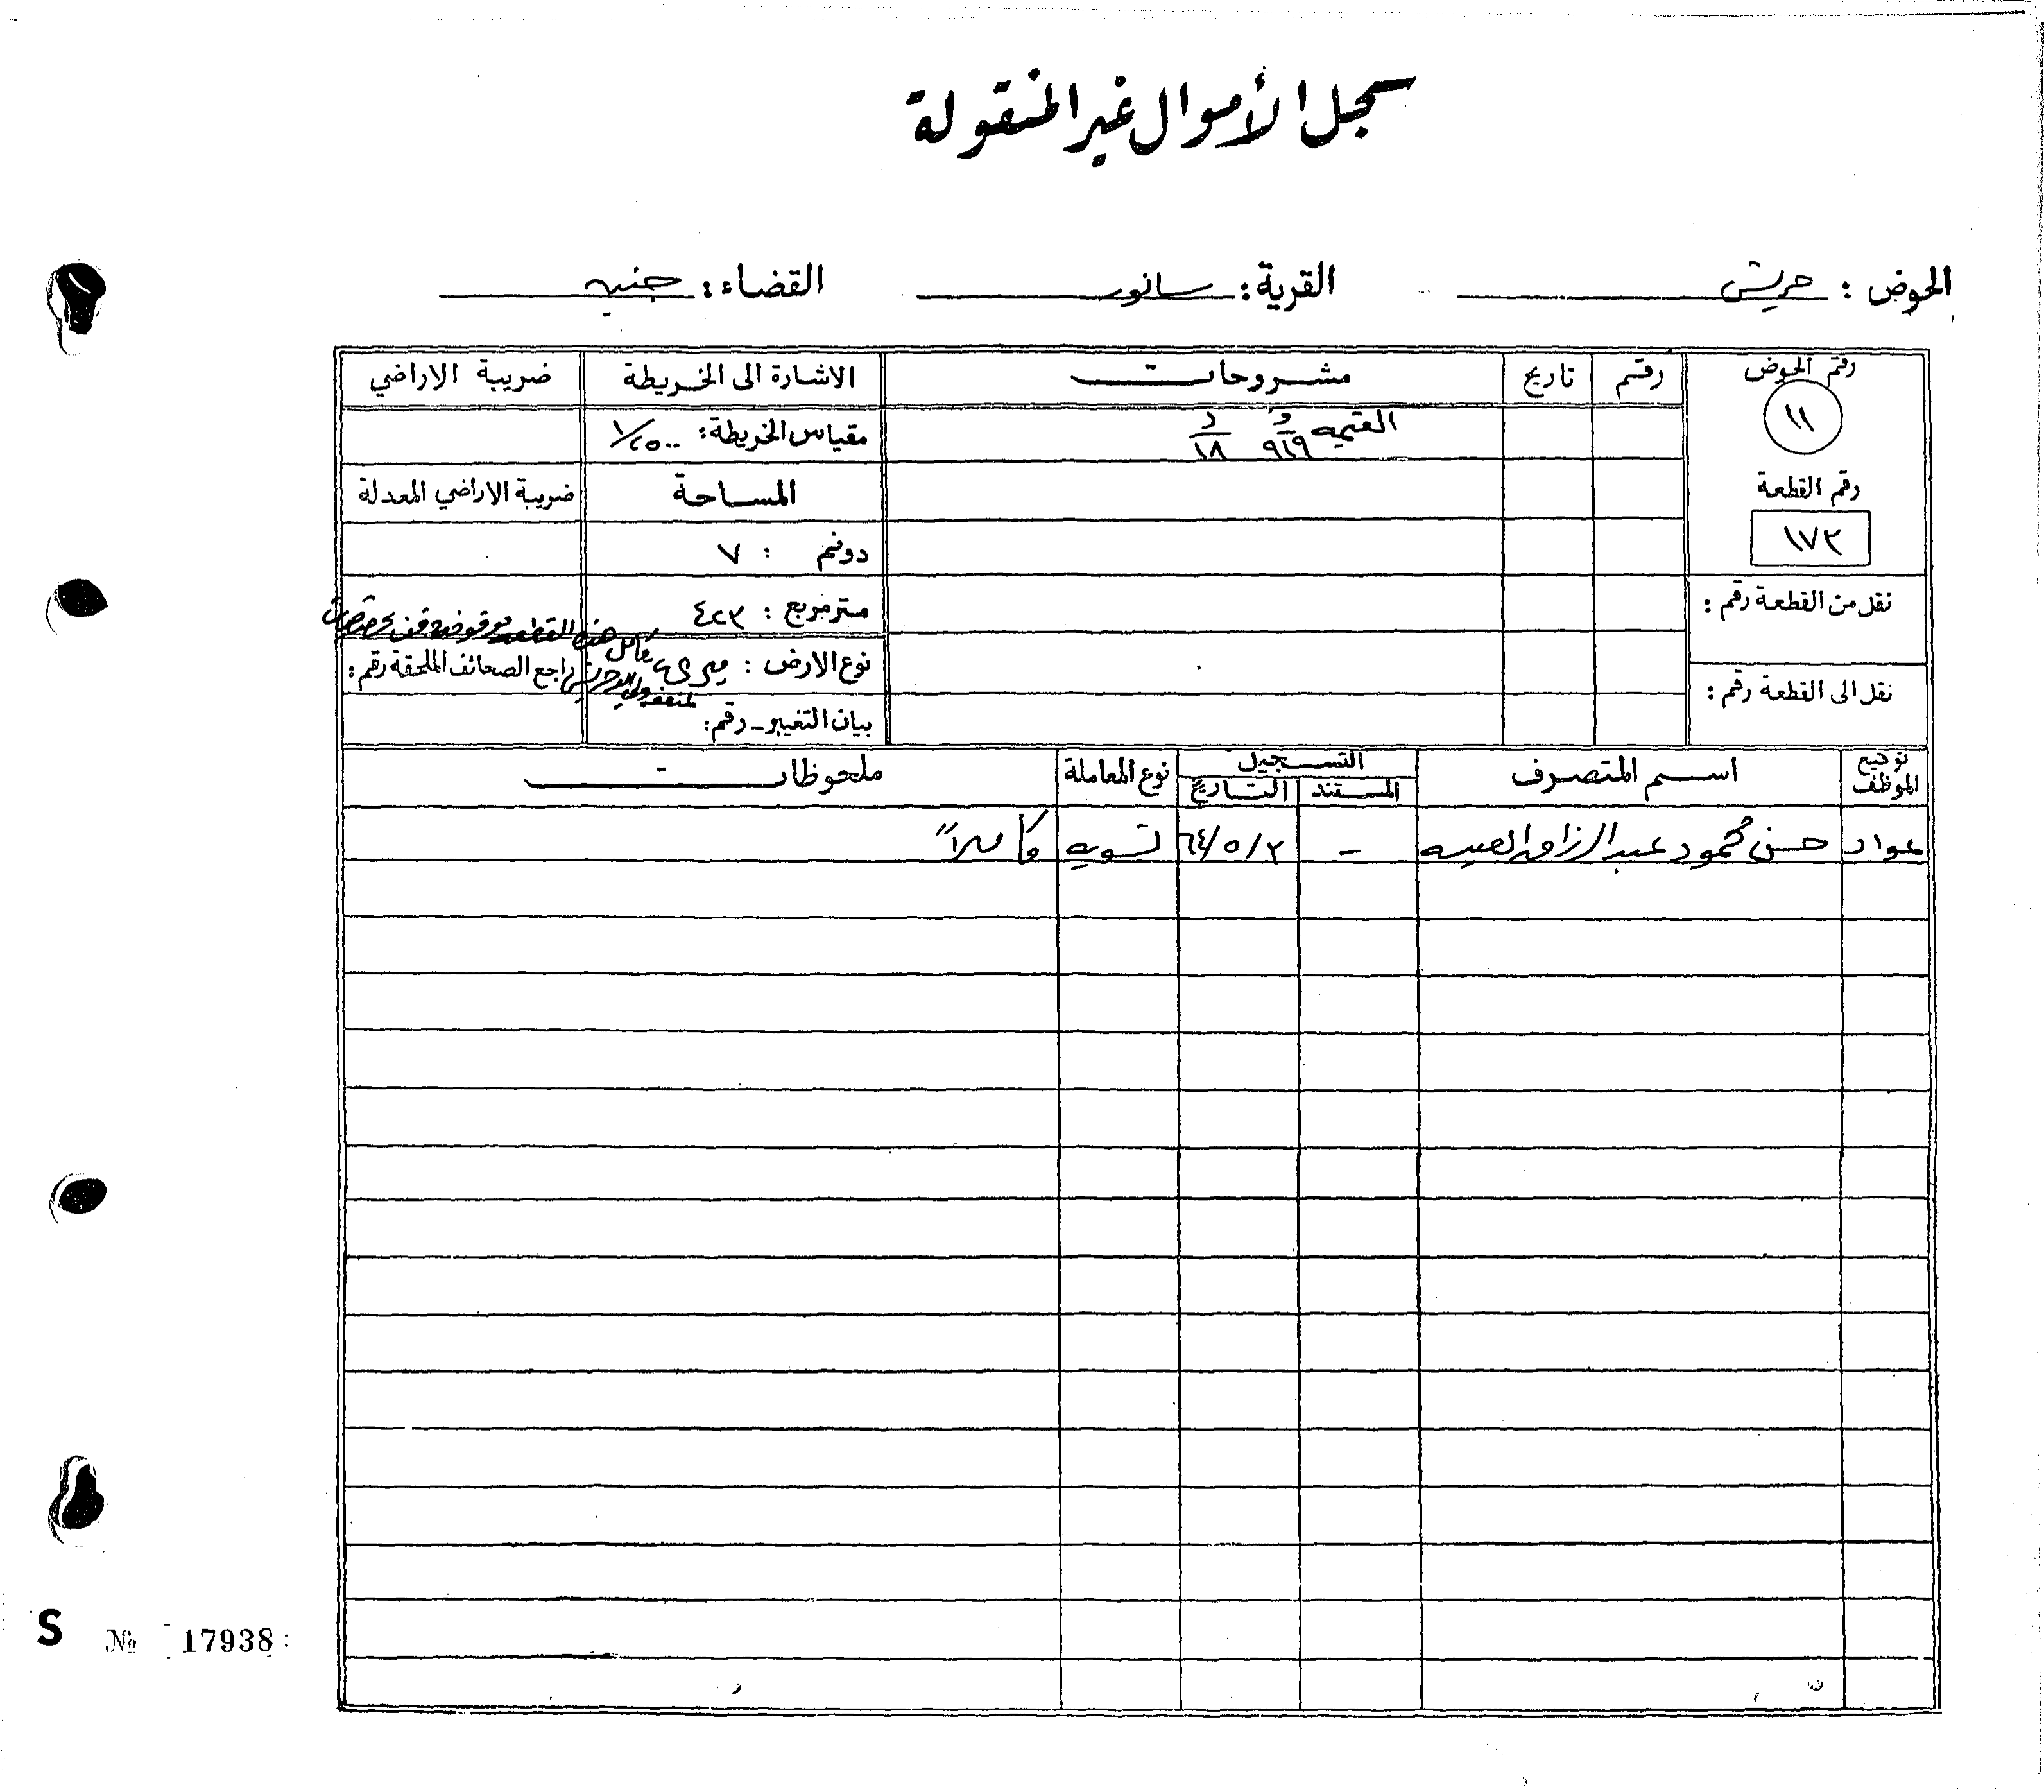 سجل الأموال غير المنقولة
الحوض : حريش القرية : سانور القضاء : جنين
رقم الحوض رقم تاريخ مشروحات الاشارة الى الخريطة ضريبة الاراضي
١١ القيمه د ٩١٩ د ١٨ مقياس الخريطة : ١/٢٥٠٠
رقم القطعة المساحة ضريبة الاراضي المعدلة
١٧٣ دونم : ٧
نقل من القطعة رقم : متر مربع : ٤٢٣
كامل هذه القطعه موقوفه وقف
نوع الارض : ميري راجع الصحائف الملحقة رقم :
نقل الى القطعة رقم :
بيان التغيير - رقم :
توقيع الموظف اسم المتصرف التسجيل المستند التاريخ نوع المعاملة ملحوظات
عواد حسن محمود عبد الرزاق العيسه - ٦٤/٥/٢ تسويه كاملاً
S № 17938